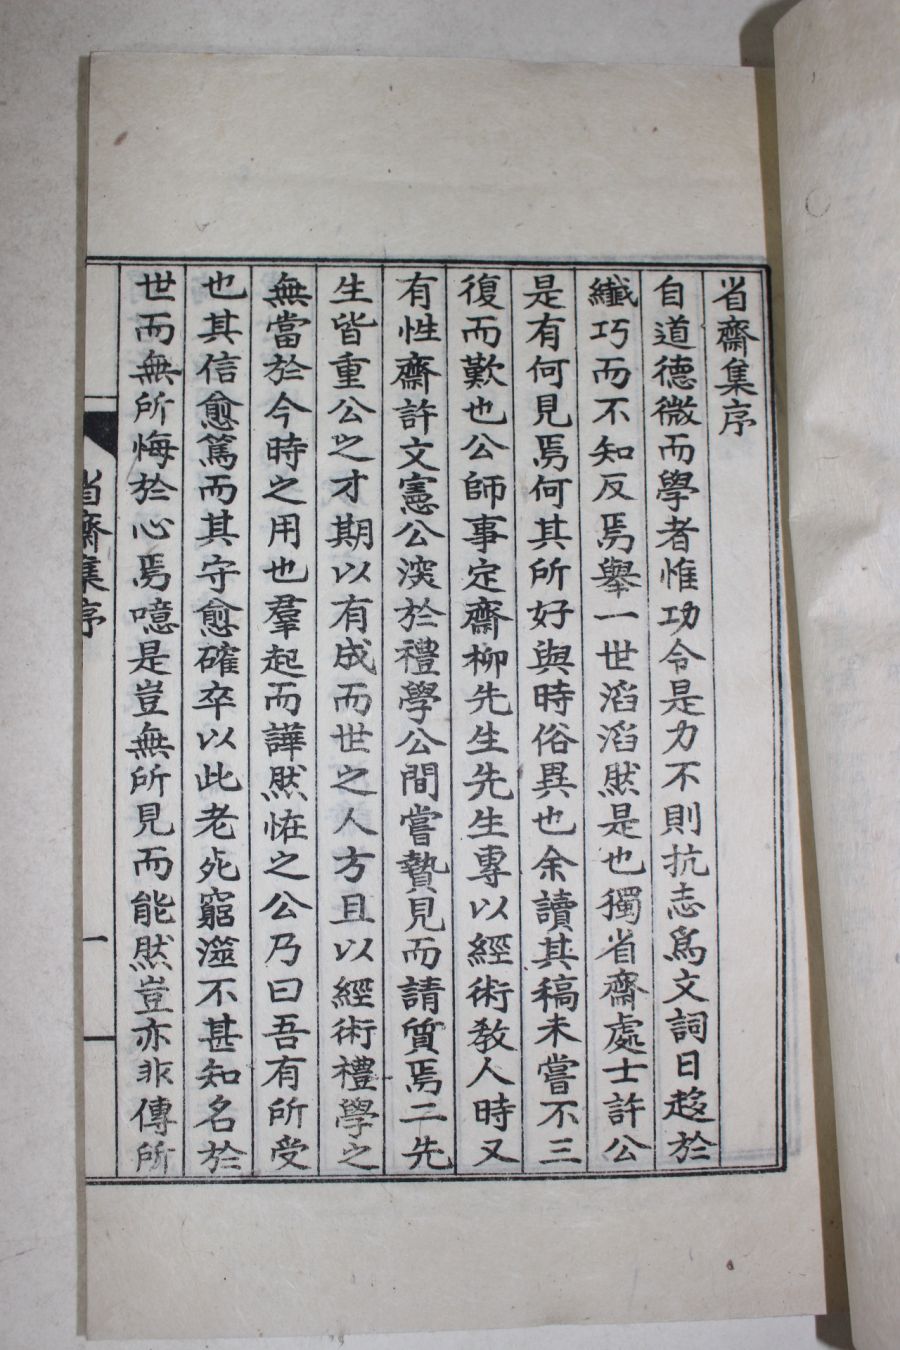 省齋集序
自道德微而學者惟功令是力不則抗志爲文詞日趍於
纖巧而不知反焉舉一世滔滔然是也獨省齋處士許公
是有何見焉何其所好與時俗異也余讀其稿未嘗不三
復而歎也公師事定齋柳先生先生專以經術敎人時又
有性齋許文憲公深於禮學公間嘗贄見而請質焉二先
生皆重公之才期以有成而世之人方且以經術禮學之
無當於今時之用也羣起而譁然恠之公乃曰吾有所受
也其信愈篤而其守愈確卒以此老死窮澨不甚知名於
世而無所悔於心焉噫是豈無所見而能然豈亦非傳所
省齋集序
一